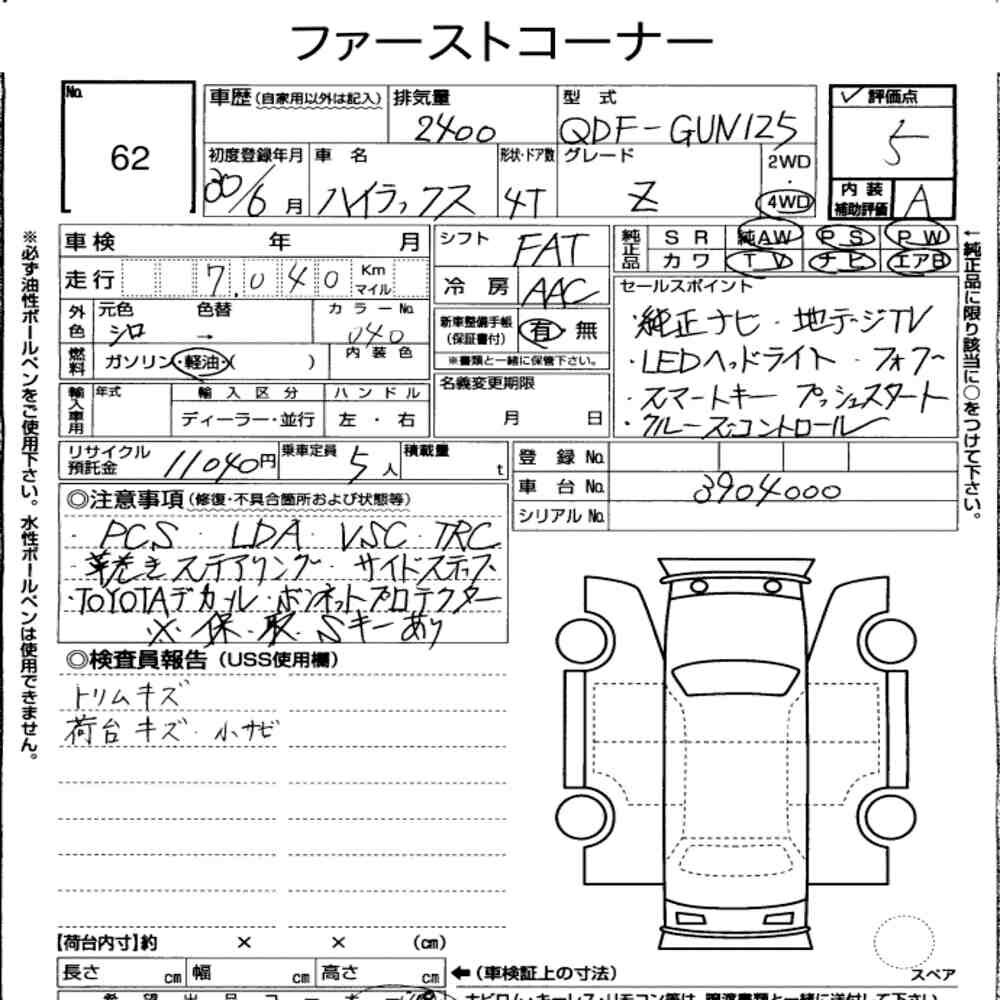 ファーストコーナー
No. 62
車歴 (自家用以外は記入) 排気量 2400 型式 QDF-GUN125
✓ 評価点 5
初度登録年月 30/6月 車名 ハイラックス 形状・ドア数 4T グレード Z 2WD・4WD
内装補助評価 A
車検 年 月
シフト FAT
純正品 SR 純AW PS PW
カワ TV ナビ エアB
走行 7,040 Km マイル
冷房 AAC
セールスポイント
・純正ナビ・地デジTV
・LEDヘッドライト・フォブ
・スマートキー プッシュスタート
・クルーズコントロール
外色 元色 シロ 色替 → カラーNo. 040
新車整備手帳 (保証書付) 有・無
※書類と一緒に保管下さい。
燃料 ガソリン・軽油・( ) 内装色
名義変更期限 月 日
輸入車用 年式 輸入区分 ハンドル
ディーラー・並行 左・右
リサイクル預託金 11040円 乗車定員 5人 積載量 t
登録No.
車台No. 3904000
シリアルNo.
◎注意事項 (修復・不具合箇所および状態等)
・PCS・LDA・VSC・TRC
革巻きステアリング・サイドステップ
・TOYOTAデカール・ボンネットプロテクター
※保・取・Sキーあり
◎検査員報告 (USS使用欄)
トリムキズ
荷台キズ・小サビ
【荷台内寸】約 × × (cm)
長さ cm 幅 cm 高さ cm ←(車検証上の寸法)
スペア
※必ず油性ボールペンをご使用下さい。水性ボールペンは使用できません。
←純正品に限り該当に○をつけて下さい。